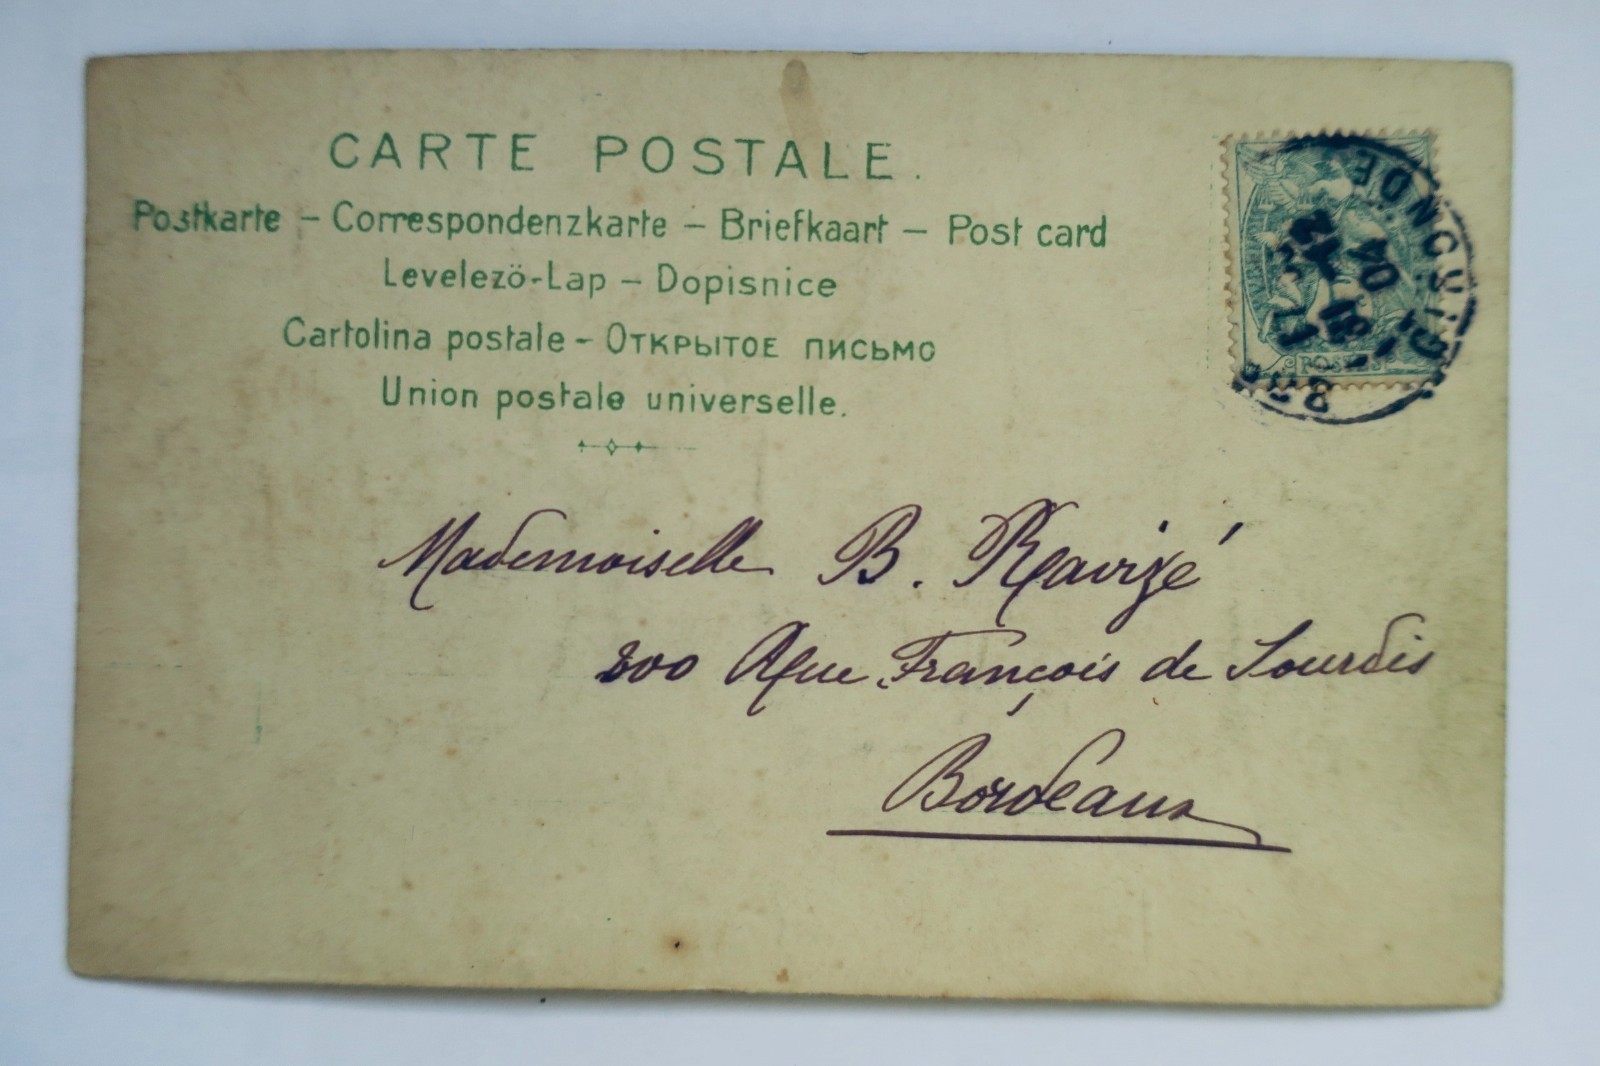 CARTE POSTALE.
Postkarte – Correspondenzkarte – Briefkaart – Post card
Levelezö-Lap – Dopisnice
Cartolina postale – Открытое письмо
Union postale universelle.
POSTES
04
Mademoiselle B. Ravizé
200 Rue François de Sourdis
Bordeaux